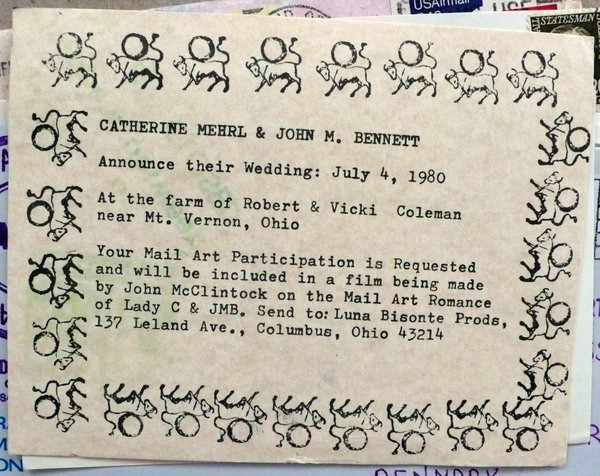 USAirmail
USE
STATESMAN
CATHERINE MEHRL & JOHN M. BENNETT
Announce their Wedding: July 4, 1980
At the farm of Robert & Vicki Coleman
near Mt. Vernon, Ohio
Your Mail Art Participation is Requested
and will be included in a film being made
by John McClintock on the Mail Art Romance
of Lady C & JMB. Send to: Luna Bisonte Prods,
137 Leland Ave., Columbus, Ohio 43214